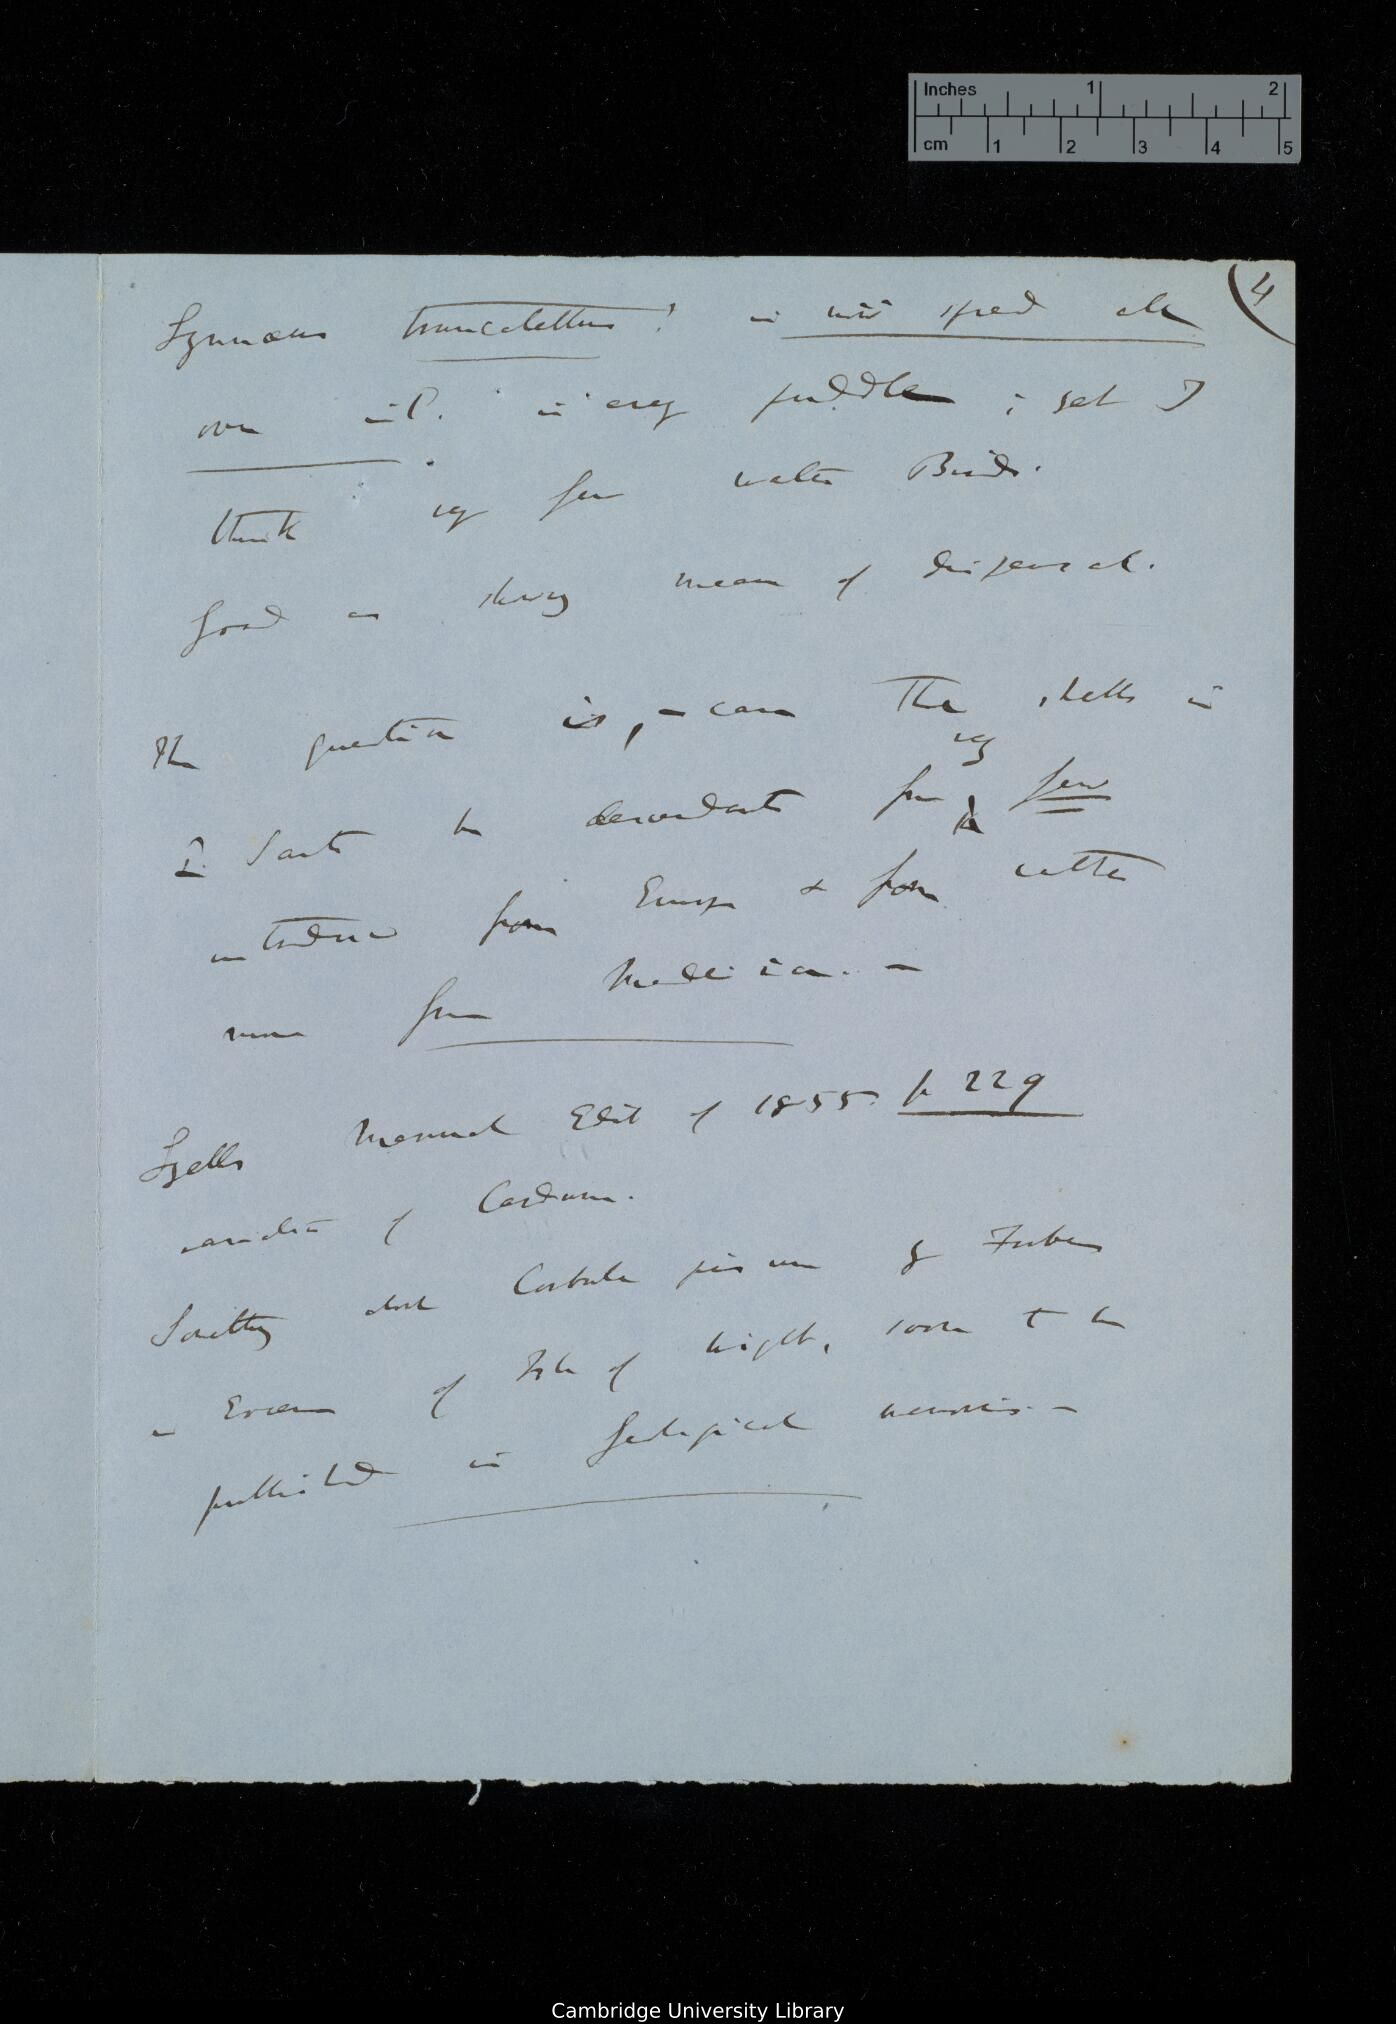 Inches 1 2
cm 1 2 3 4 5
4
Lymnæus truncatellus? is wide spread all
over isl. in every puddle; yet I
think very few water Birds.
Good as showing means of dispersal.
The question is, — can the shells in
very
P. Santo be descendants from few
introduced from Europe & from rather
more from Madeira. —
Lyells Manual Edit of 1855. p 229
varieties of Cardium.
Something about Corbula pisum of Forbes
in Eocene of Isle of Wight, soon to be
published in Geological memoirs. —
Cambridge University Library